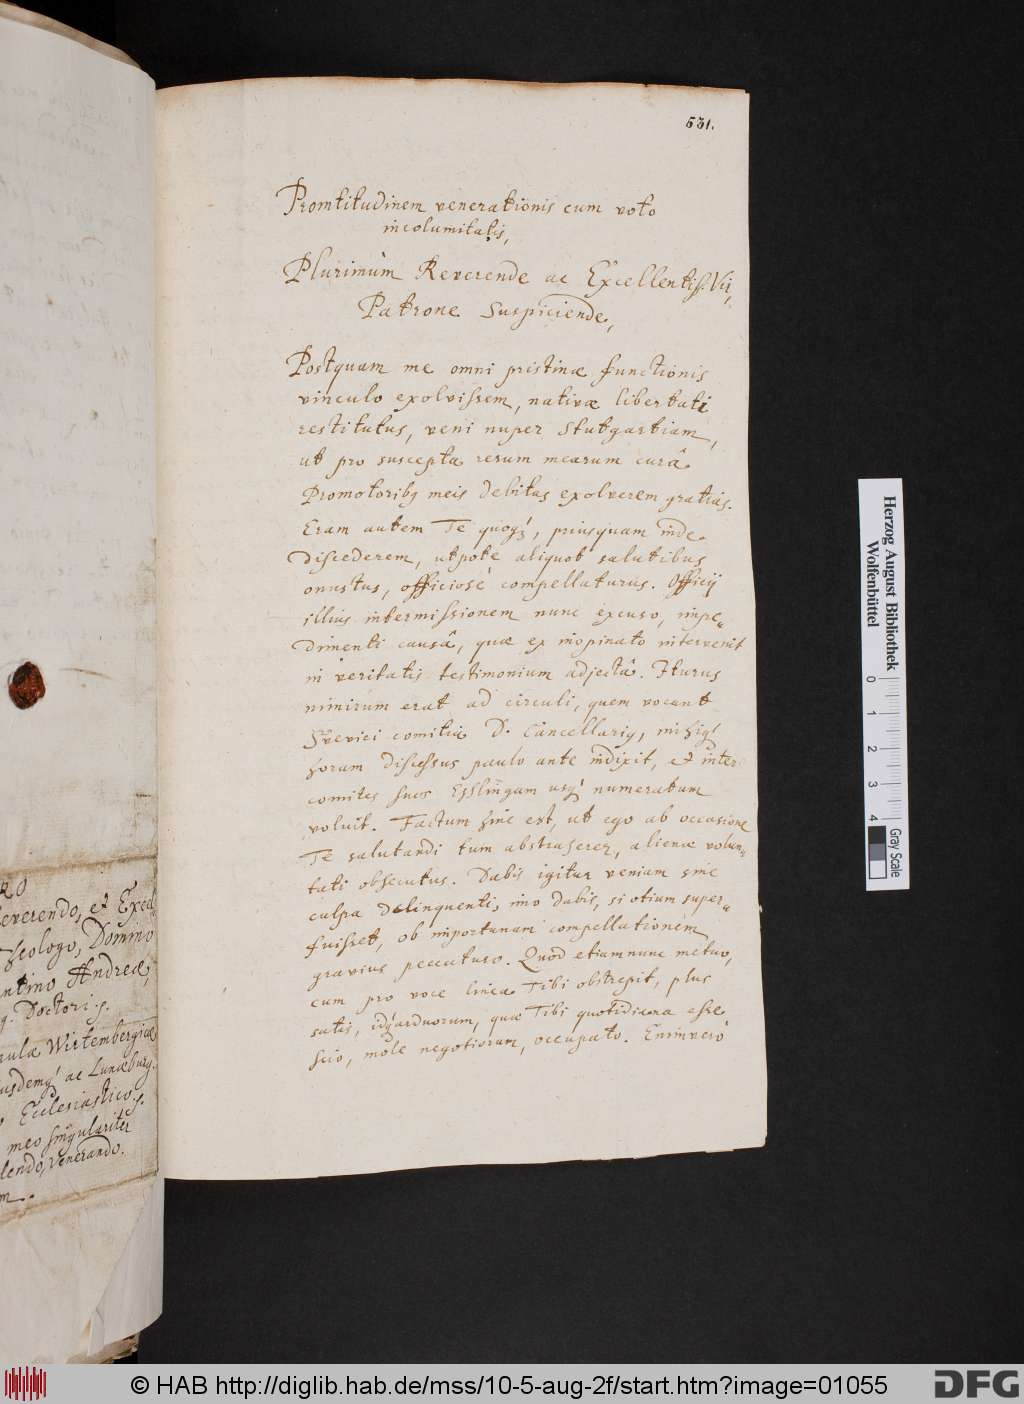 531.
Promtitudinem venerationis cum voto
incolumitatis,
Plurimùm Reverende ac Excellentiss. Vir,
Patrone Suspiciende,
Postquam me omni pristinæ functionis
vinculo exolvissem, nativæ libertati
restitutus, veni nuper Stutgartiam,
ut pro suscepta rerum mearum curâ
Promotoribq meis debitas exolverem gratias.
Eram autem Te quoqꝫ, priusquam inde
discederem, utpote aliquot salutibus
onustus, officiosè compellaturus. Officij
illius intermissionem nunc excuso, impe-
dimenti causâ, quæ ex inopinato intervenit
in veritatis testimonium adjectâ. Iturus
nimirum erat ad circuli, quem vocant
Svevici comitia D. Cancellariq, mihiq
horam discessus paulo ante indixit, et inter
comites suos Esslingam usq numeratum
voluit. Factum hinc est, ut ego ab occasione
Te salutandi tum abstraherer, alienæ volun-
tati obsecutus. Dabis igitur veniam sine
culpa delinquenti, imo dabis, si otium super-
fuisset, ob importunam compellationem
gravius peccaturo. Quod etiamnunc metuo,
cum pro voce linea Tibi obstrepit, plus
satis, idq arduorum, quæ Tibi quotidiana esse
scio, mole negotiorum, occupato. Enimverò
RO
Reverendo, et Excel-
Theologo, Domino
ntino Andreæ,
q. Doctori .s.
aulæ Wirtembergicæ
usdemq ac Lunæburg.
o Ecclesiastico .s.
meo singulariter
lendo, venerando.
m..
Herzog August Bibliothek
Wolfenbüttel
0 1 2 3 4
Gray Scale
© HAB http://diglib.hab.de/mss/10-5-aug-2f/start.htm?image=01055
DFG